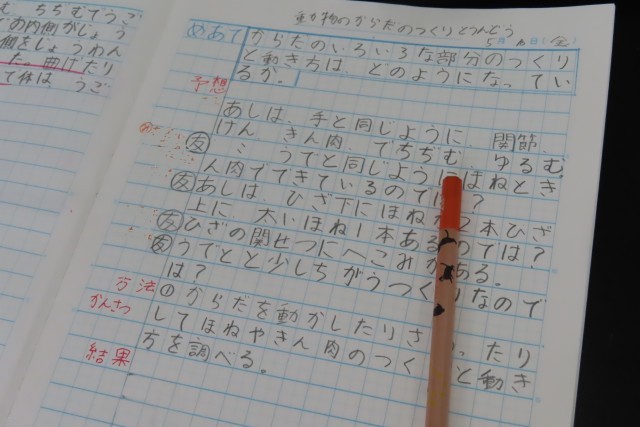 む ちちむでうご
どの内側がしょう
側をしょうわん
た。曲げたり
て体は、うご
動物のからだのつくりとうんどう
5月 日(金)
めあて からだのいろいろな部分のつくり
と動き方は、どのようになってい
るか。
予想 あしは、手と同じように、関節、
けん、きん肉、でちぢむ、ゆるむ。
友 うでと同じようにほねとき
ん肉でできているのでは?
友 あしは、ひざ下にほねが2本ひざ
上に、太いほね1本あるのでは?
友 ひざの関せつにへこみがある。
友 うでとと少しちがうつくりなので
は?
方法 ① からだを動かしたりさ ったり
かんさつ してほねやきん肉のつく と動き
結果 方を調べる。